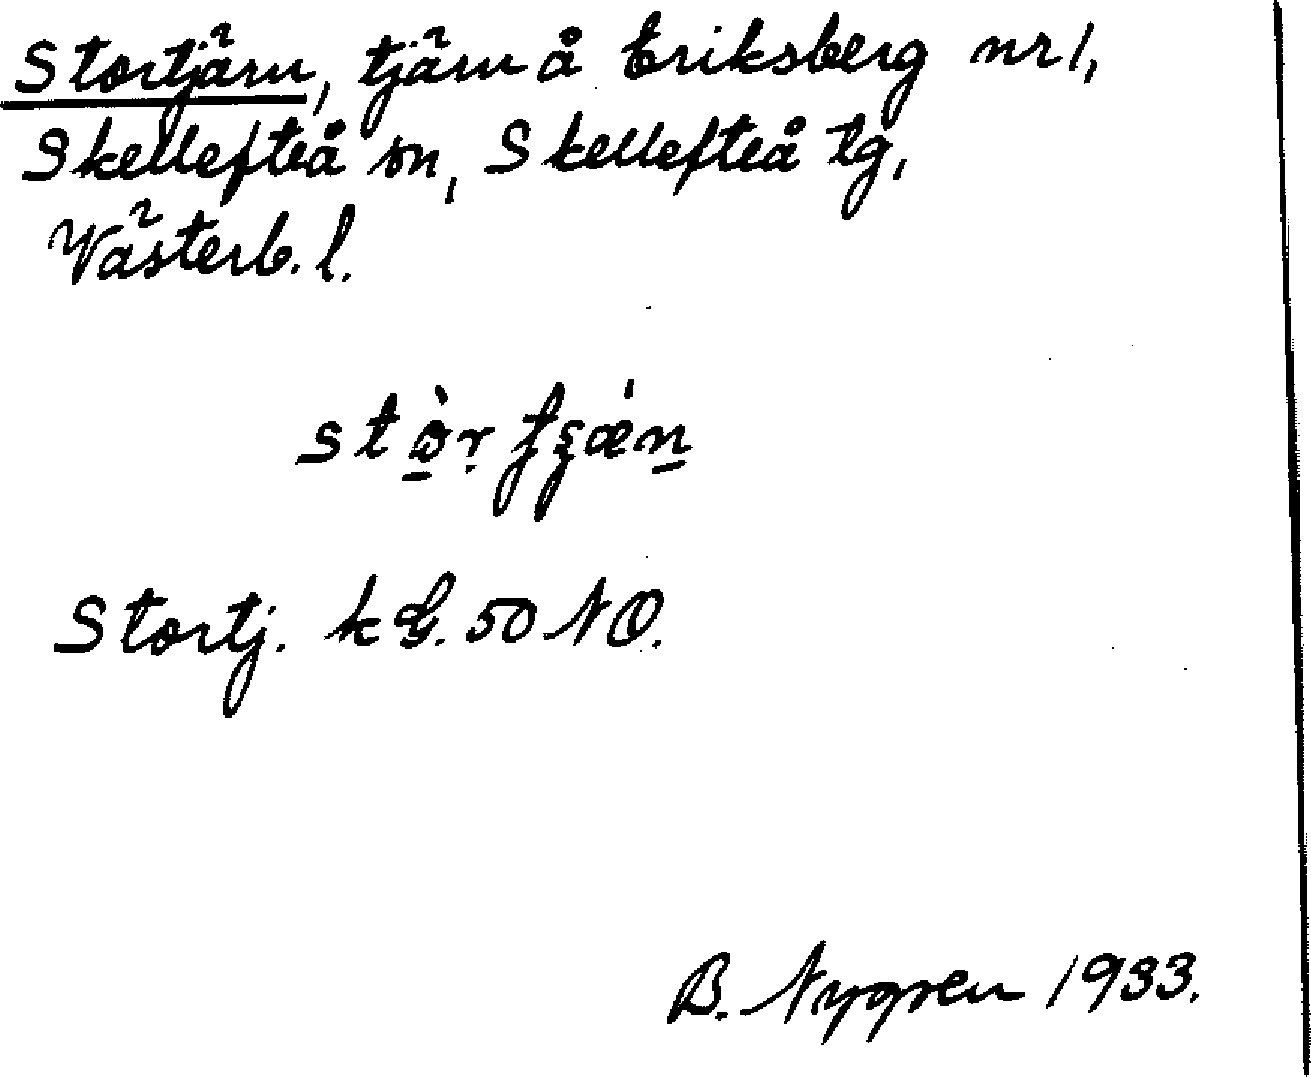 Stortjärn, tjärn å Eriksberg nr 1,
Skellefteå sn, Skellefteå tg,
Västerb. l.
Stortj. k G. 50 NO.
B. Nygren 1933.